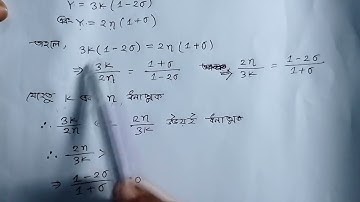 Y = 3K (1-2σ)
Y = 2η (1+σ)
তাহলে, 3K(1-2σ) = 2η (1+σ)
⇒ 3K/2η = (1+σ)/(1-2σ) ⇒ 2η/3K = (1-2σ)/(1+σ)
যেহেতু K ও η ধনাত্মক
∴ 3K/2η 2η/3K উভয়ই ধনাত্মক
∴ 2η/3K >
⇒ (1-2σ)/(1+σ) 0